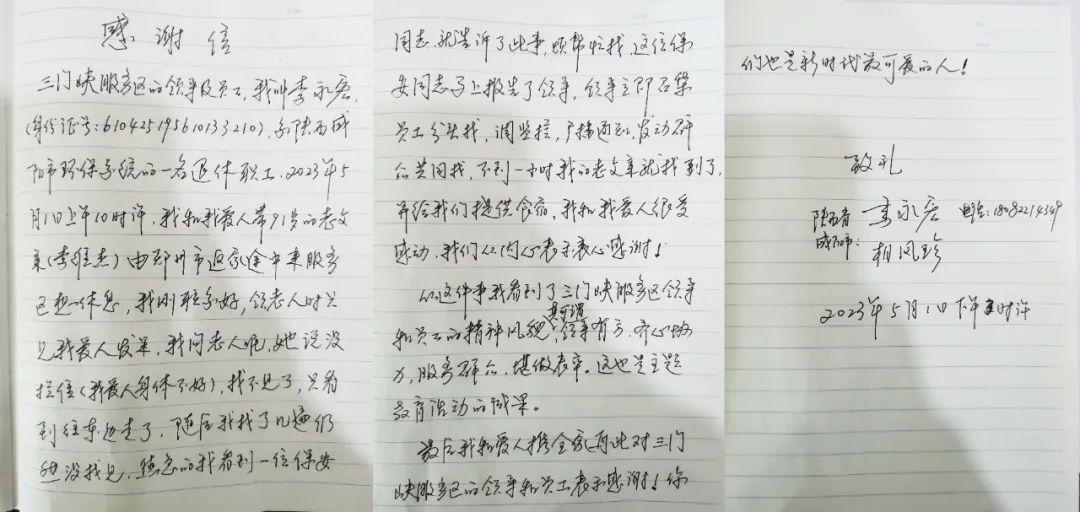 感谢信
三门峡服务区的领导及员工，我叫李永宏，
(身份证号：610425195610133210)，系陕西咸
阳市环保系统的一名退休职工，2023年5
月1日上午10时许，我和我爱人带91岁的老父
亲(李维杰)由郑州市返家途中来服务
区想一休息，我刚联系好，领老人时只
见我爱人发呆，我问老人呢，她说没
拦住(我爱人身体不好)，找不见了，只看
到往东边走了，随后我找了几遍仍
没找见，焦急的我看到一位保安
同志，就告诉了此事，烦帮忙找，这位保
安同志马上报告了领导，领导立即召集
员工分头找，调监控，广播通知，发动群
众共同找，不到一小时我的老父亲就找到了，
并给我们提供食宿，我和我爱人很受
感动，我们从内心表示衷心感谢！
从这件事我看到了三门峡服务区领导
和员工的精神风貌，真可谓领导有方，齐心协
力，服务群众，堪做表率。这也是主题
教育活动的成果。
最后我和爱人携全家再此对三门
峡服务区的领导和员工表示感谢！你
们也是新时代最可爱的人！
致礼
陕西省 李永宏 电话：18092214349
咸阳市： 相凤珍
2023年5月1日下午时许